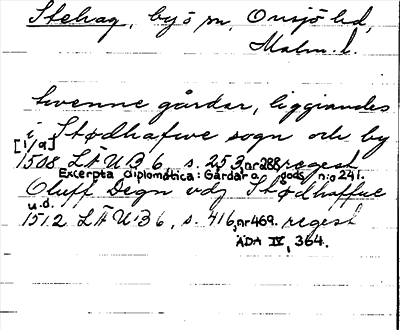 Stehag, by o sn, Onsjö hd,
Malm. l.
tvenne gårdar, liggiandes
i Stødhafwe sogn och by
[1/9]
1508 LÄUB 6, s. 253, nr 288, regest
Excerpta diplomatica: Gårdar o. gods n:o 241.
Oluff Degn vdj Stødhaffue
u.d.
1512 LÄUB 6, s. 416, nr 469. regest
ÄDA IV, 364.